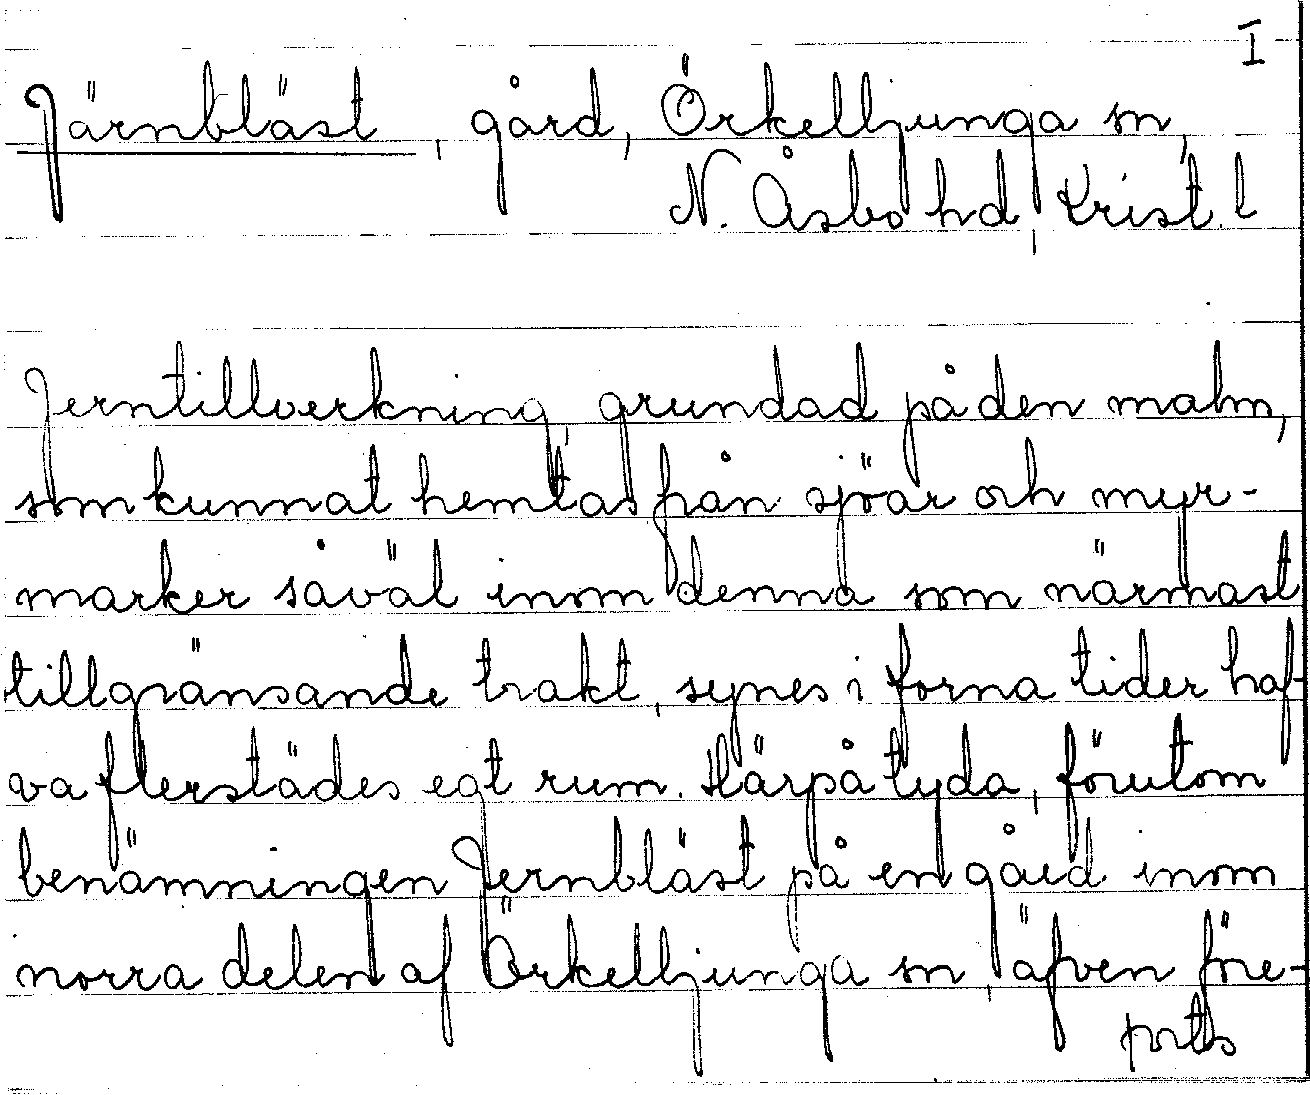 I
Järnbläst, gård, Örkelljunga sn,
N. Åsbo hd, Krist. l
Jerntillverkning, grundad på den malm,
som kunnat hemtas från sjöar och myr-
marker såväl inom denna som närmast
tillgränsande trakt, synes i forna tider haf-
va flerstädes egt rum. Härpå tyda, förutom
benämningen Jernbläst på en gård inom
norra delen af Örkelljunga sn, äfven före-